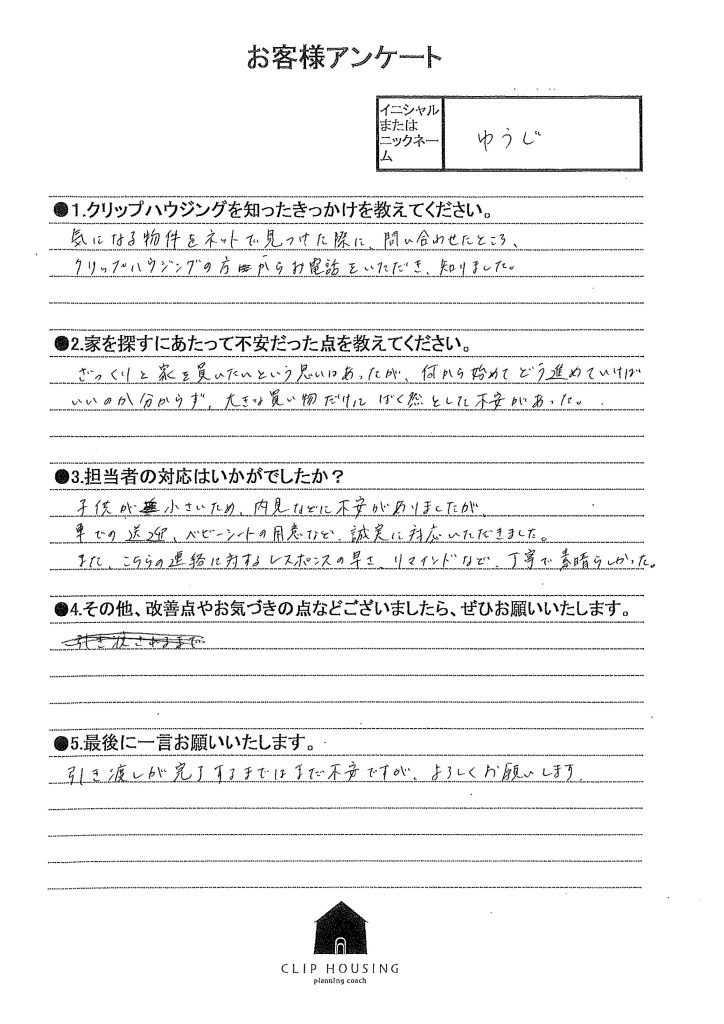 お客様アンケート
イニシャル
または
ニックネー
ム
ゆうじ
●1.クリップハウジングを知ったきっかけを教えてください。
気になる物件をネットで見つけた際に、問い合わせたところ、
クリップハウジングの方からお電話をいただき、知りました。
●2.家を探すにあたって不安だった点を教えてください。
ざっくりと家を買いたいという思いはあったが、何から始めてどう進めていけば
いいのか分からず、大きな買い物だけにばく然とした不安があった。
●3.担当者の対応はいかがでしたか？
子供が小さいため、内見などに不安がありましたが、
車での送迎、ベビーシートの用意など、誠実に対応いただきました。
また、こちらの連絡に対するレスポンスの早さ、リマインドなど、丁寧で素晴らしかった。
●4.その他、改善点やお気づきの点などございましたら、ぜひお願いいたします。
●5.最後に一言お願いいたします。
引き渡しが完了するまではまだ不安ですが、よろしくお願いします.
CLIP HOUSING
planning coach